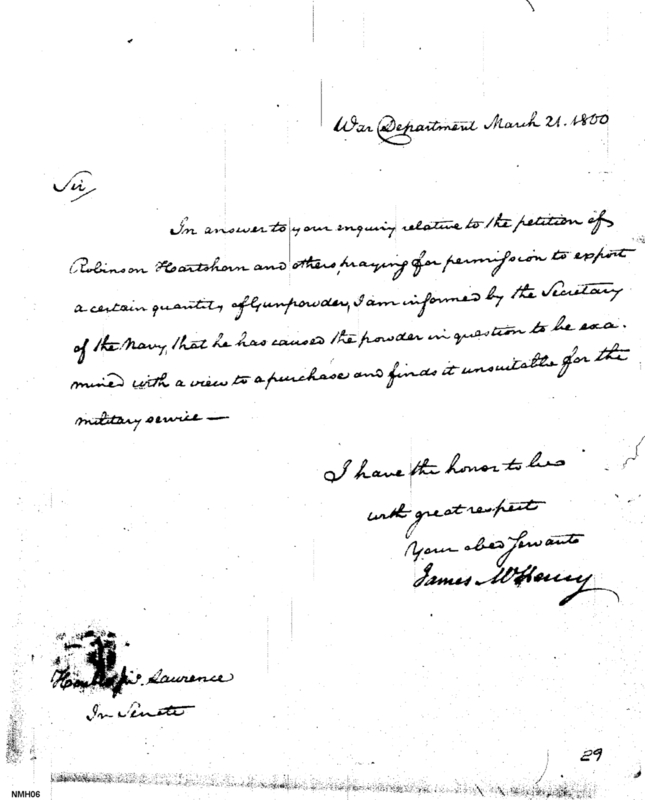 War Department March 21. 1800
Sir
In answer to your enquiry relative to the petition of
Robinson Hartshorn and others, praying for permission to export
a certain quantity of Gunpowder, I am informed by the Secretary
of the Navy, that he has caused the powder in question to be exa-
mined with a view to a purchase and finds it unsuitable for the
military service —
I have the honor to be
with great respect
Your obed Servant
James McHenry
Lawrence
In Senate
29
NMH06